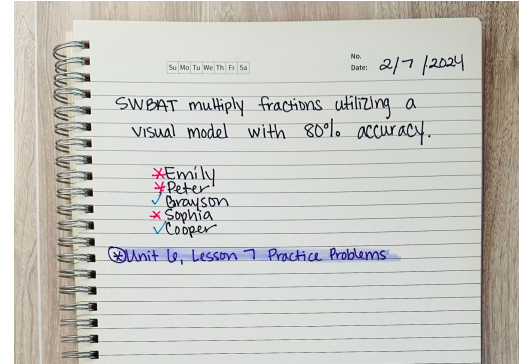 No.
Su Mo Tu We Th Fr Sa
Date: 2/7/2024
SWBAT multiply fractions utilizing a
visual model with 80% accuracy.
x Emily
x Peter
✓ Grayson
x Sophia
✓ Cooper
* Unit 6, Lesson 7 Practice Problems